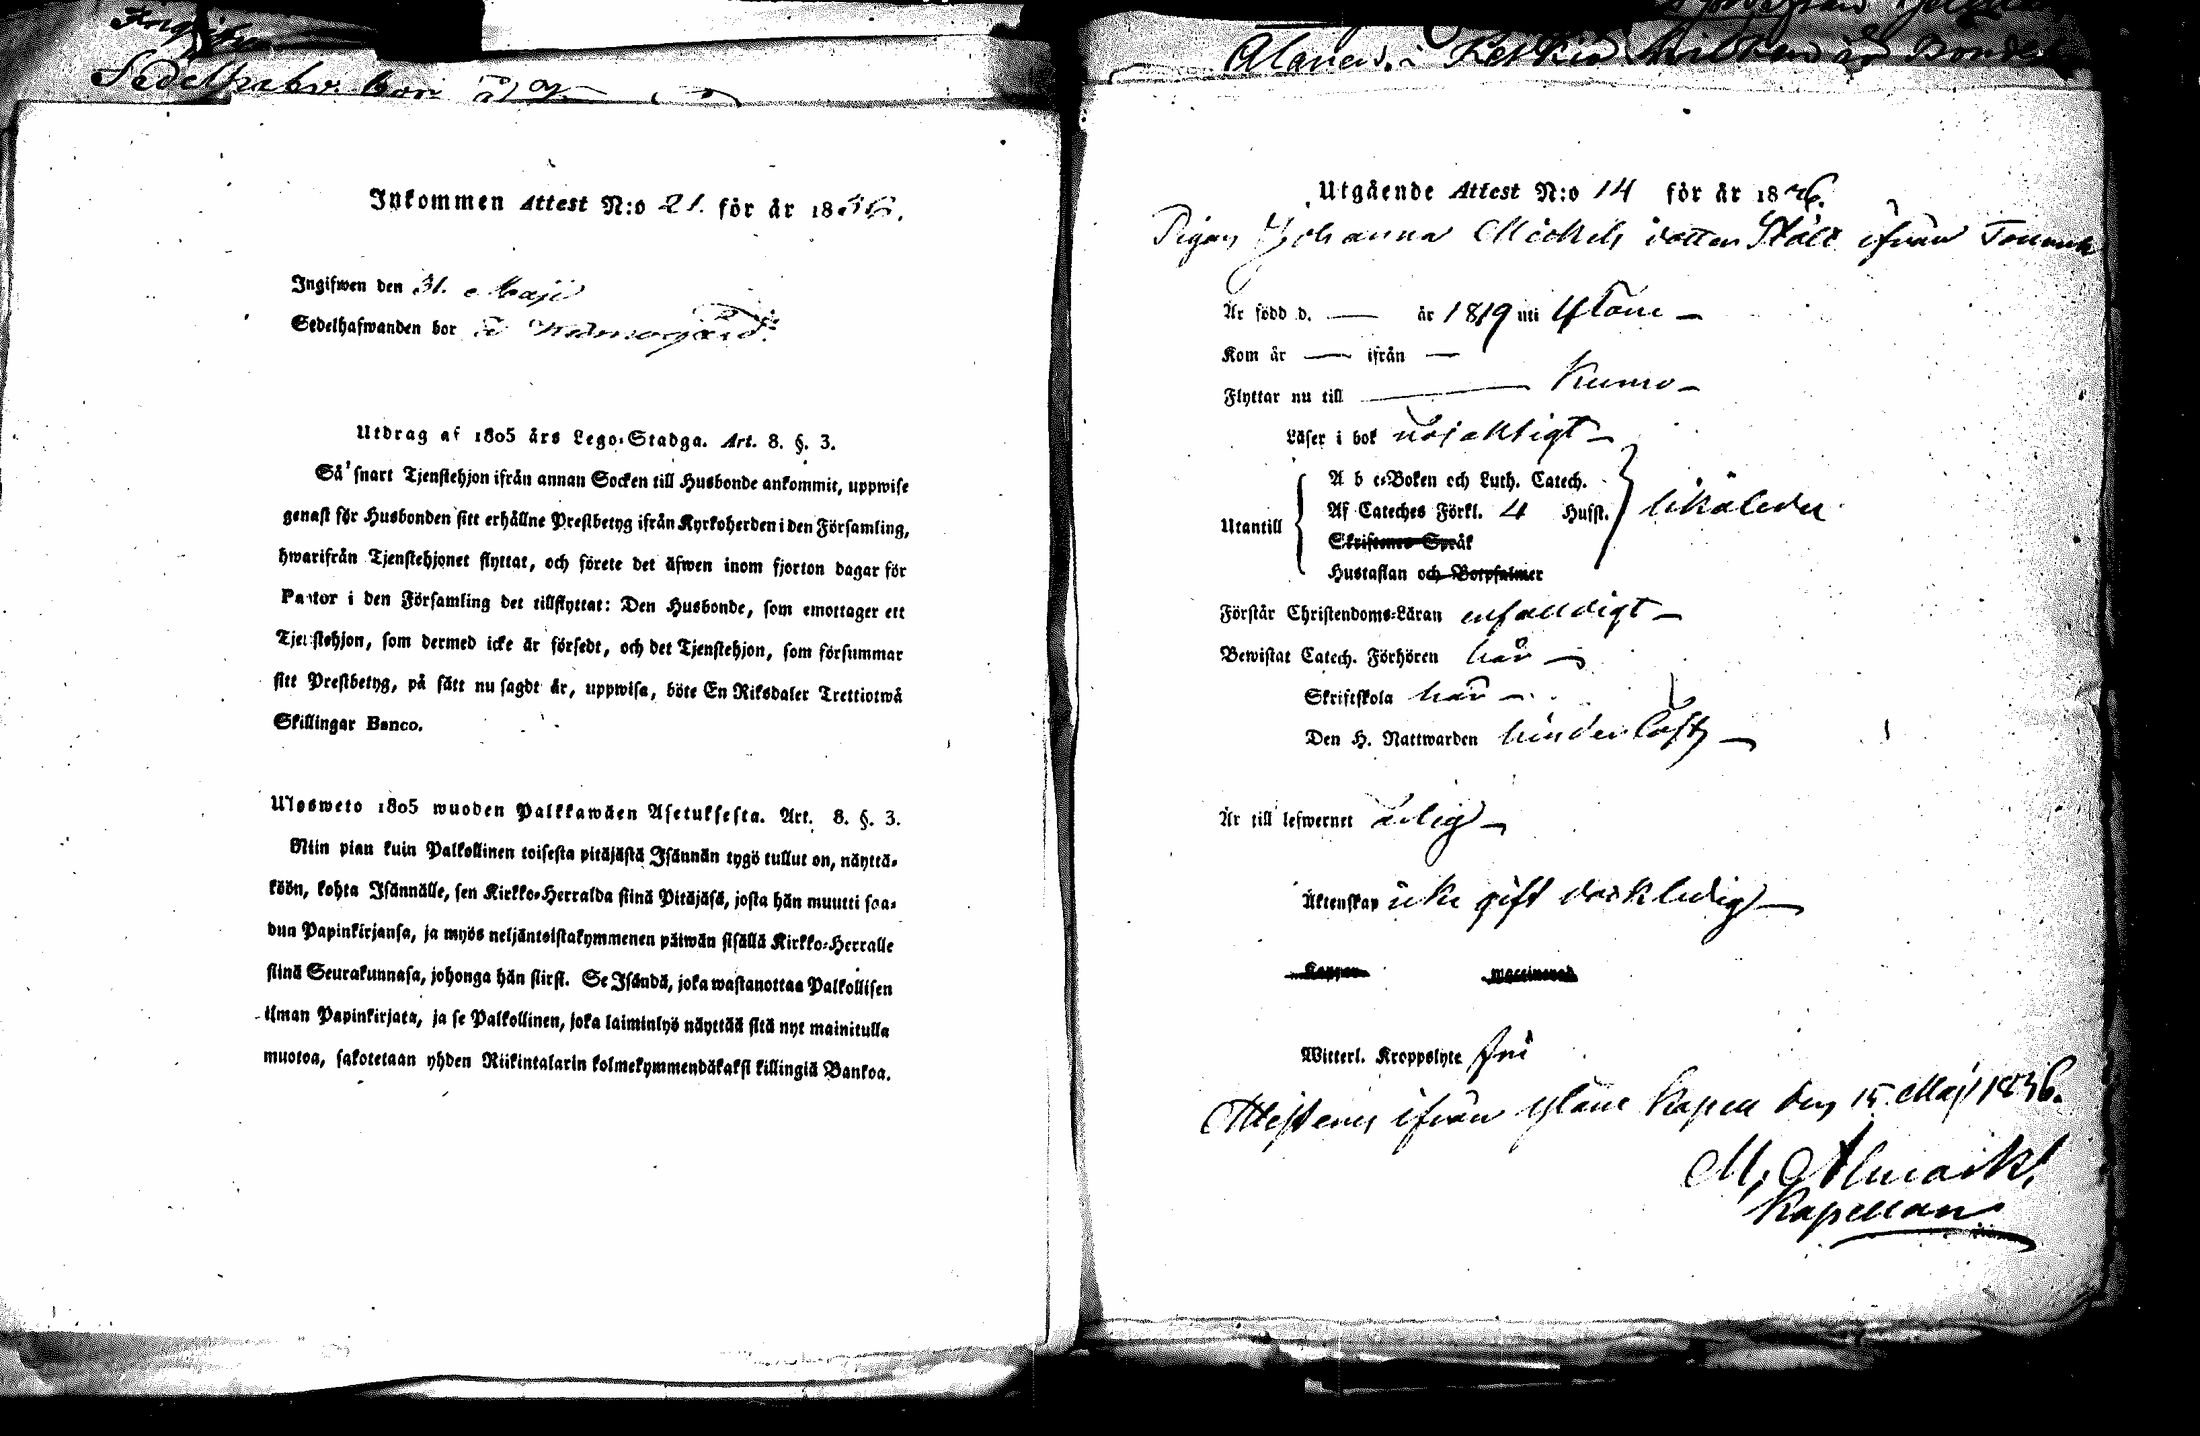 Sedelhafv. bor å
Inkommen Attest N:o 21. för år 1836.
Ingifwen den 31. Maji
Sedelhafwanden bor å
Utdrag af 1805 års Lego-Stadga. Art. 8. §. 3.
Så snart Tjenstehjon ifrån annan Socken till Husbonde ankommit, uppwise
genast för Husbonden sitt erhållne Prestbetyg ifrån Kyrkoherden i den Församling,
hwarifrån Tjenstehjonet flyttat, och förete det äfwen inom fjorton dagar för
Pastor i den Församling det tillflyttat: Den Husbonde, som emottager ett
Tjenstehjon, som dermed icke är försedt, och det Tjenstehjon, som försummar
sitt Prestbetyg, på sätt nu sagdt är, uppwisa, böte En Riksdaler Trettiotwå
Skillingar Banco.
Ulosweto 1805 wuoden Palkkawäen Asetuksesta. Art. 8. §. 3.
Niin pian kuin Palkollinen toisesta pitäjästä Isännän tygö tullut on, näyttä-
köön, kohta Isännälle, sen Kirkko-Herralda siinä Pitäjäsä, josta hän muutti saa-
dun Papinkirjansa, ja myös neljäntoistakymmenen päiwän sisällä Kirkko-Herralle
siinä Seurakunnasa, johonga hän siirsi. Se Isändä, joka wastanottaa Palkollisen
ilman Papinkirjata, ja se Palkollinen, joka laiminlyö näyttää sitä nyt mainitulla
muotoa, sakotetaan yhden Riikintalarin kolmekymmendäkaksi killingiä Bankoa.
i hvilken är Bonde
Utgående Attest N:o 14 för år 1836.
Pigan Johanna Mickels dotter Stålt ifrån
Är född d. — år 1819 uti Yläne —
Kom år — ifrån —
Flyttar nu till — Kumo —
Läser i bok nöjaktigt —
A b c-Boken och Luth. Catech.
Utantill Af Cateches Förkl. 4 Husst. likaledes
Skriftenes Språk
Hustaflan och Botpsalmer
Förstår Christendoms-Läran enfaldigt —
Bewistat Catech. Förhören har —
Skriftskola har —
Den H. Nattwarden hinderlöst —
Är till lefwernet ärlig —
Äktenskap icke gift och ledig —
Koppor waccinerad
Witterl. Kroppslyte fri
Attesteras ifrån Yläne Kapell den 15 Maji 1836.
M. Almark.
Kapellan